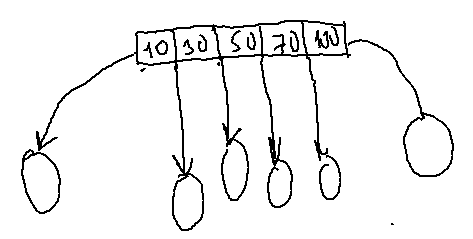 10 30 50 70 100